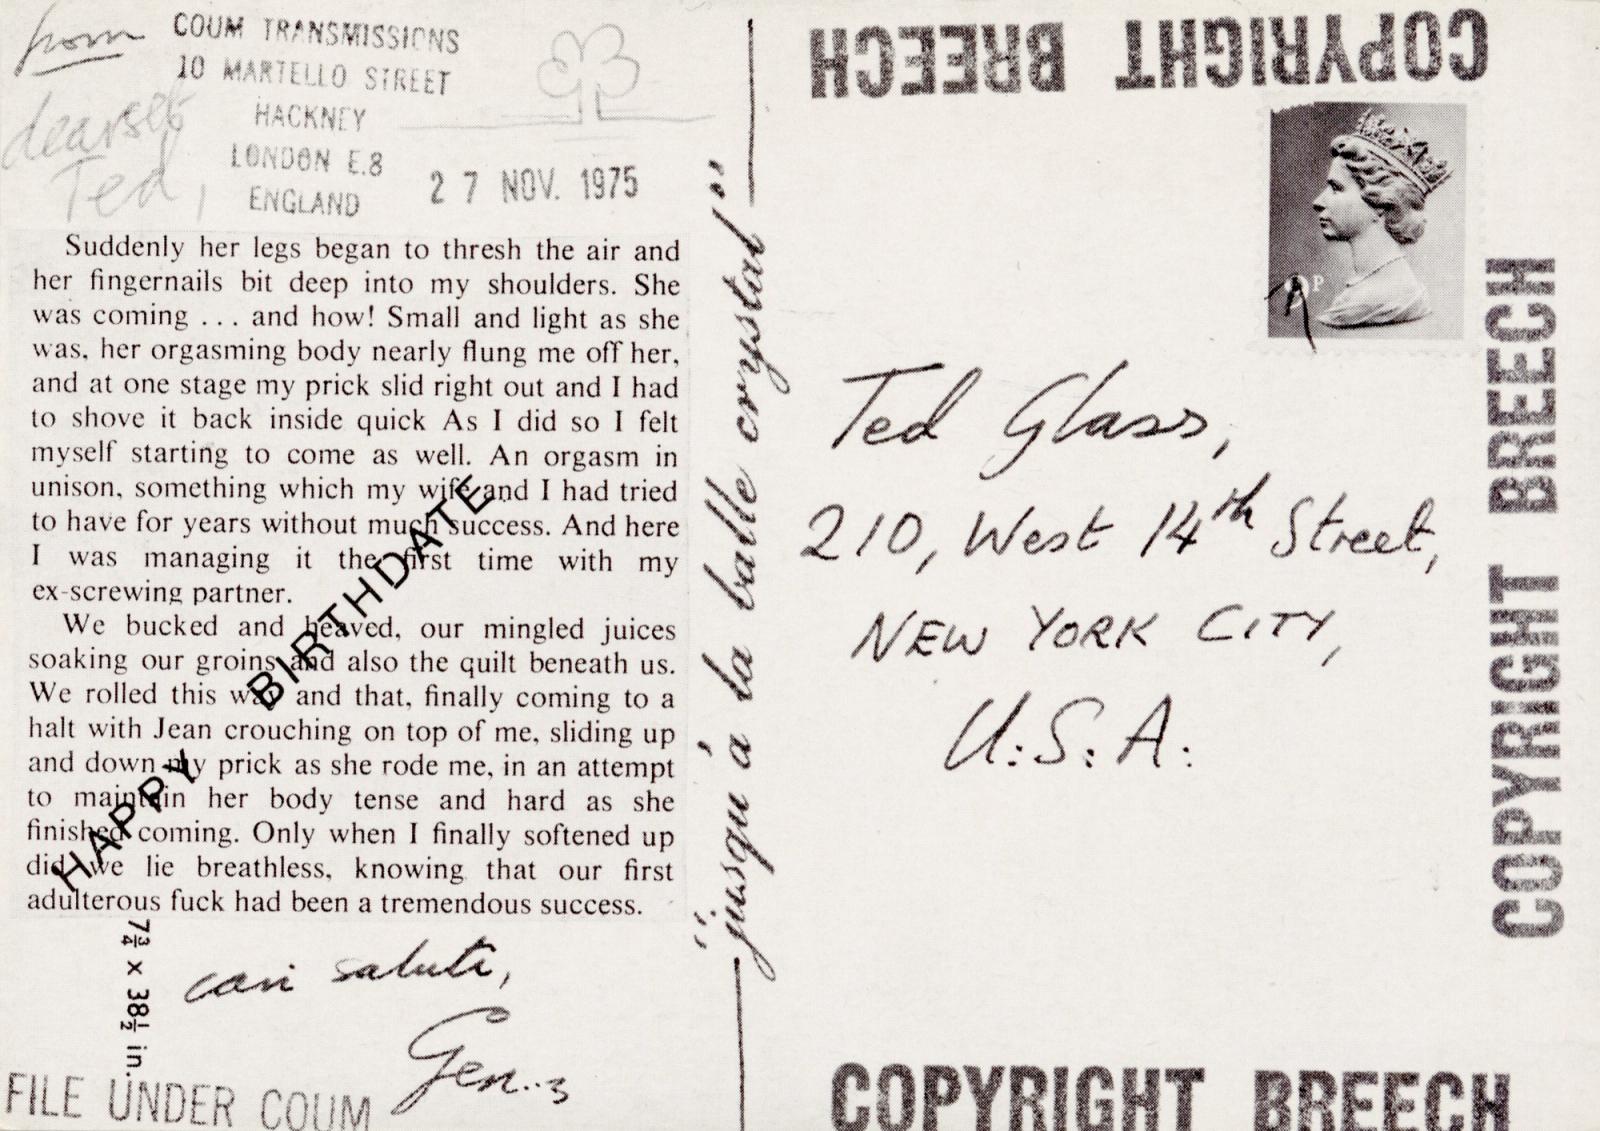 from
COUM TRANSMISSIONS
10 MARTELLO STREET
HACKNEY
LONDON E.8
ENGLAND
27 NOV. 1975
dearest
Ted,
Suddenly her legs began to thresh the air and
her fingernails bit deep into my shoulders. She
was coming ... and how! Small and light as she
was, her orgasming body nearly flung me off her,
and at one stage my prick slid right out and I had
to shove it back inside quick As I did so I felt
myself starting to come as well. An orgasm in
unison, something which my wife and I had tried
to have for years without much success. And here
I was managing it the first time with my
ex-screwing partner.
We bucked and heaved, our mingled juices
soaking our groins and also the quilt beneath us.
We rolled this way and that, finally coming to a
halt with Jean crouching on top of me, sliding up
and down my prick as she rode me, in an attempt
to maintain her body tense and hard as she
finished coming. Only when I finally softened up
did we lie breathless, knowing that our first
adulterous fuck had been a tremendous success.
HAPPY BIRTHDATE
7¾ x 38½ in.
cari saluti,
Gen..3
FILE UNDER COUM
"jusqu'à la balle crystal"
COPYRIGHT BREECH
P
Ted Glass,
210, West 14th Street,
NEW YORK CITY,
U.S.A.
COPYRIGHT BREECH
COPYRIGHT BREECH